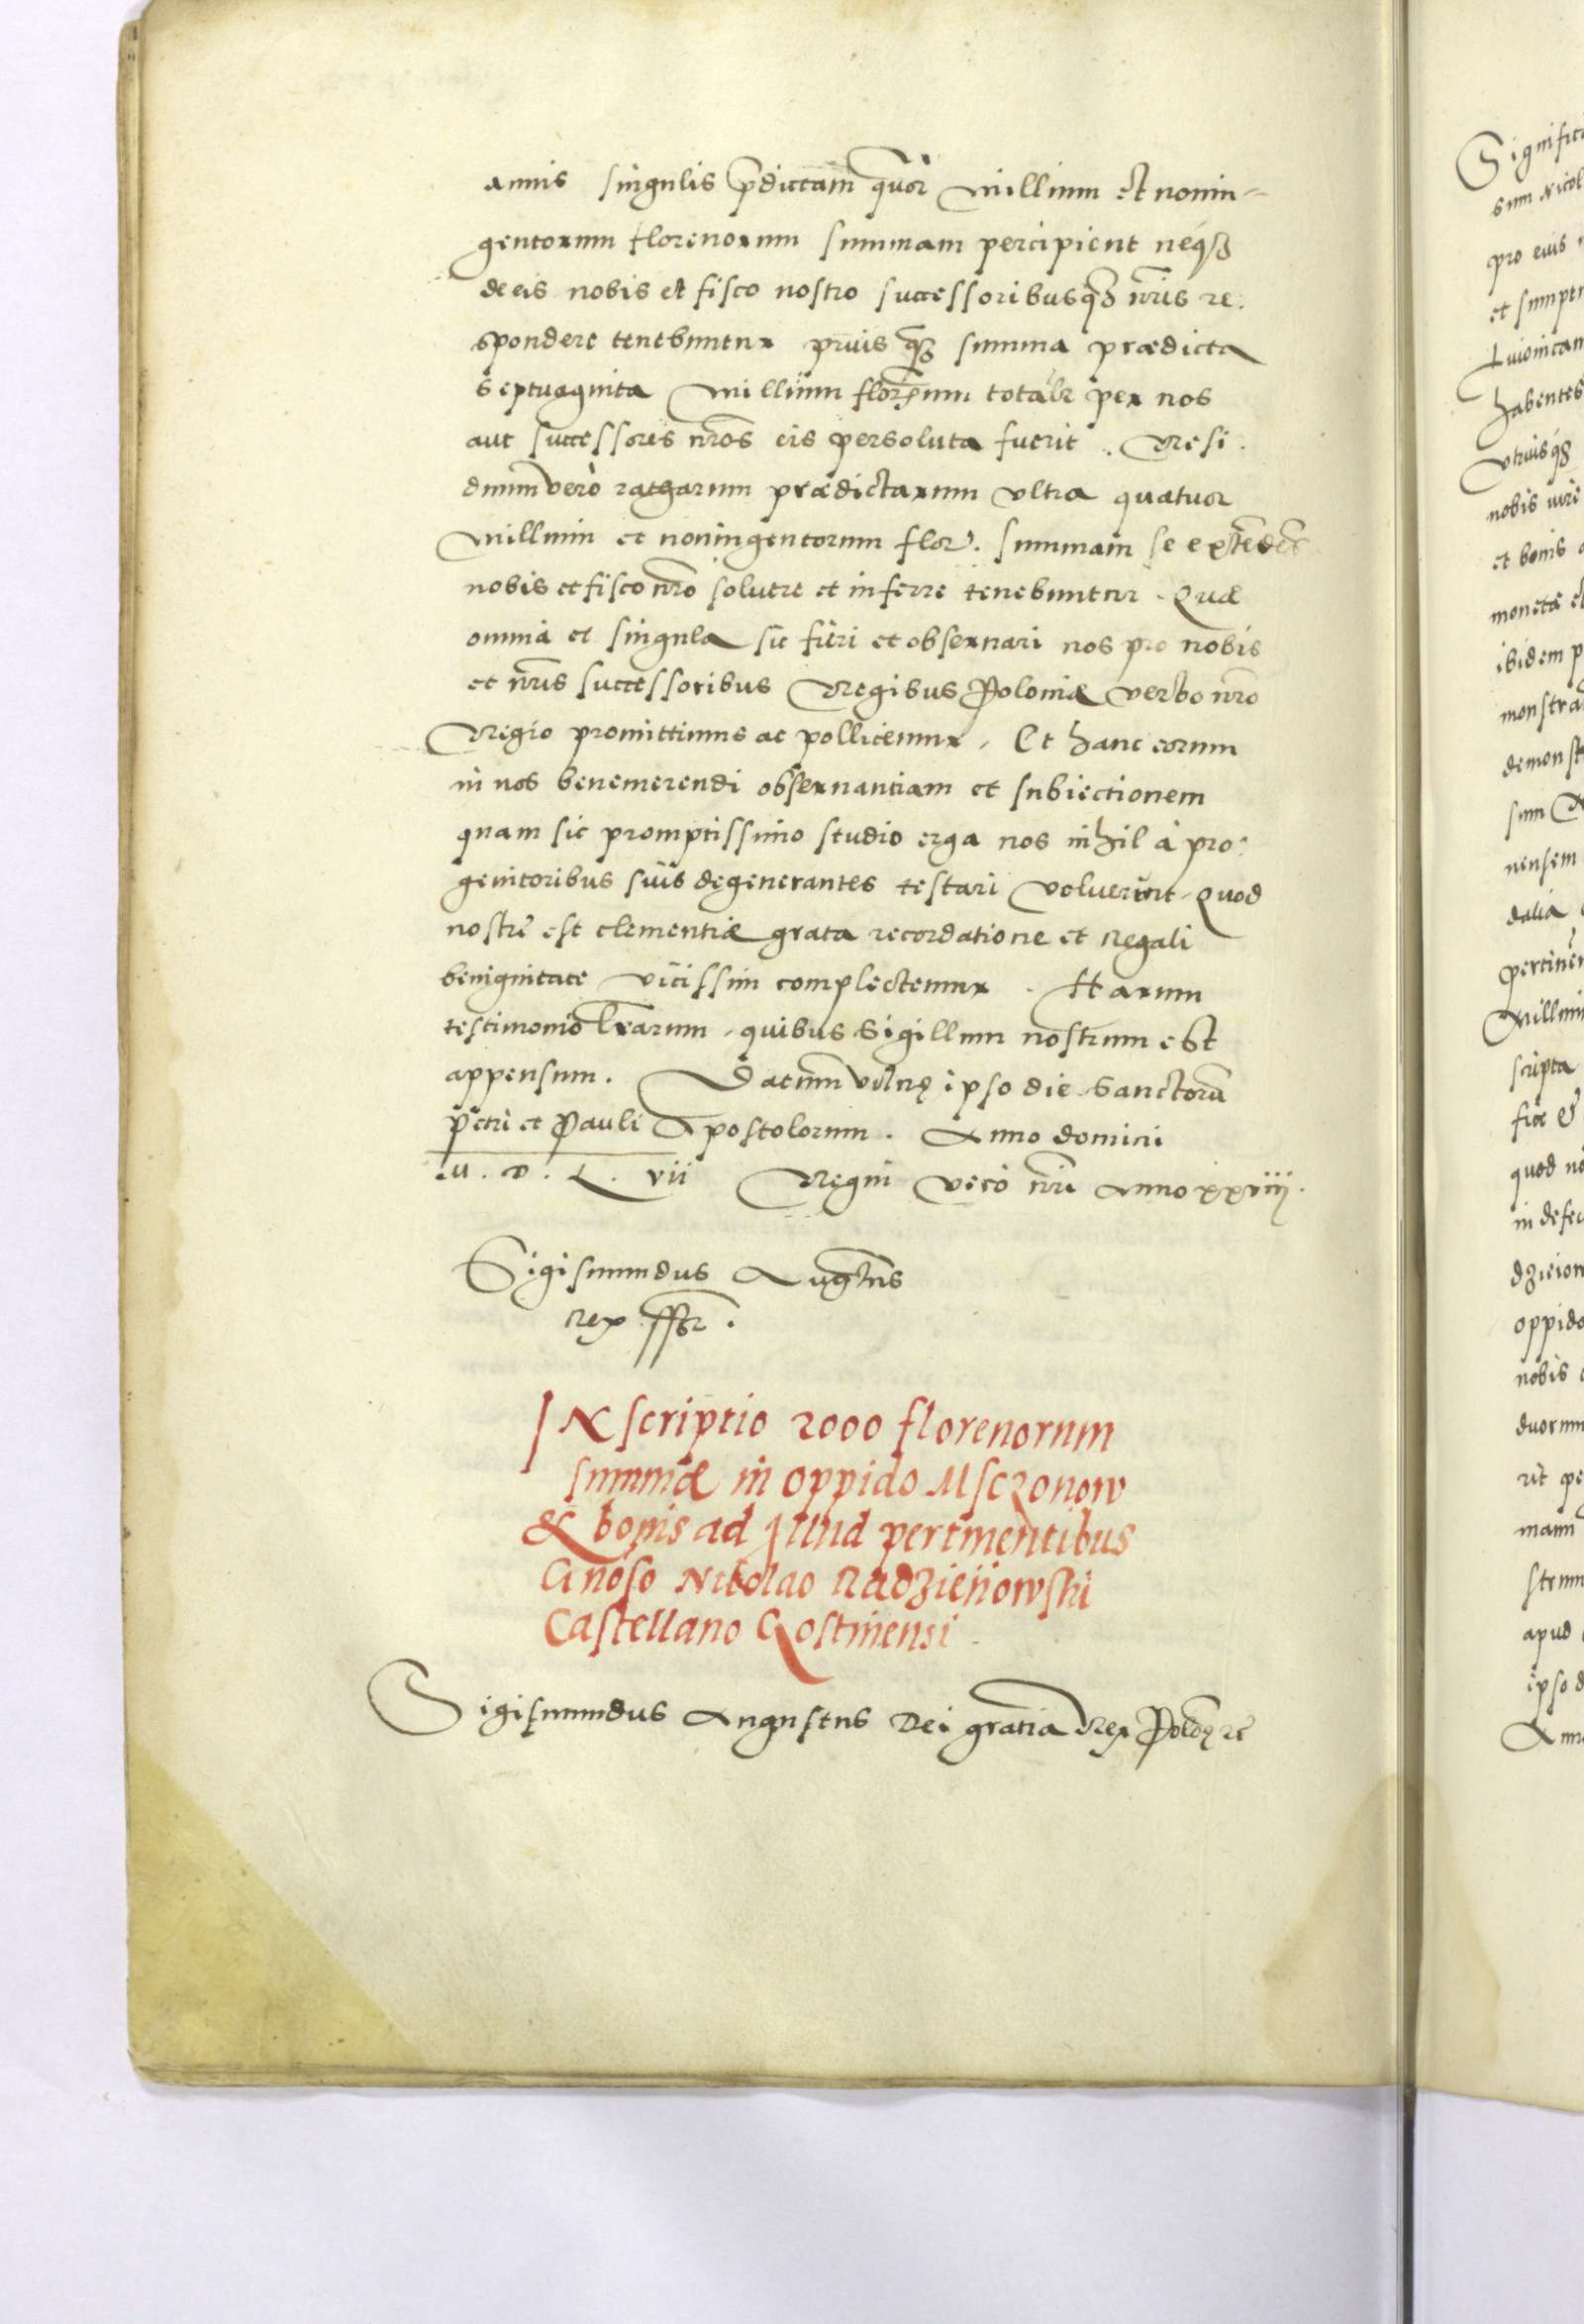 annis singulis p̄dictam quor̄ millium et nonin-
gentorum florenorum summam percipient neq3
de eis nobis et fisco nostro successoribusq3 nr̄is re.
spondere tenebuntur prius q̄3 summa prædicta
septuaginta millium florenum totalr per nos
aut successores nr̄os eis persoluta fuerit. Resi.
duum vero ratharum prædictarum vltra quatuor
millium et noningentorum flor. summam se extēdēs
nobis et fisco nr̄o soluere et inferre tenebuntur. Quæ
omnia et singula sic fieri et obseruari nos pro nobis
et nr̄is successoribus Regibus Poloniæ verbo nr̄o
Regio promittimus ac pollicemur. Et hanc eorum
in nos benemerendi obseruantiam et subiectionem
quam sic promptissimo studio erga nos nihil à pro:
genitoribus suis degenerantes testari voluerunt. Quod
nostrę est clementiæ grata recordatione et Regali
benignitate vicissim complectemur. Harum
testimonio lr̄arum, quibus Sigillum nostrum est
appensum. Datum Vilnę ipso die Sanctorū
Petri et Pauli Apostolorum. Anno domini
M. D. L. vii Regni vero nr̄i Anno xxviij.
Sigismundus Augtus
Rex sst.
INscriptio 2000 florenorum
summæ in oppido Msczonow
& bonis ad illud pertinentibus
Gnoso Nicolao Radzieiiowski
Castellano Gostinensi
Sigismundus Augustus Dei gratia Rex Polōę rc̄
Signific
sum Nicol
pro eius
et sumpt
habentes
vtriusq3
nobis iure
et bonis
monetæ
ibidem p
monstra
demonst
sum
nensem
dalia
pertinen
millium
scripta
quod no
in defec
oppido
nobis
duorum
rit pe
apud
ipso d
Ann